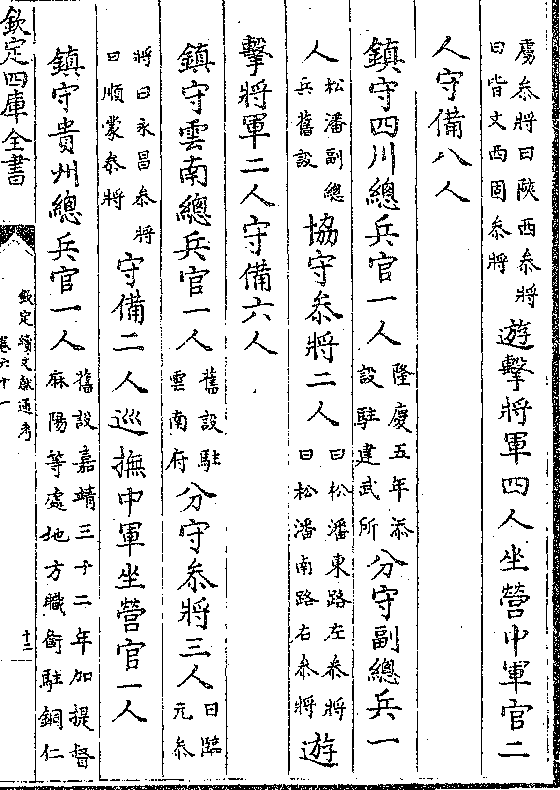 虜叅將曰陝西叅將
曰皆文西固叅將
遊擊將軍四人坐營中軍官二
人守備八人
鎮守四川總兵官一人
隆慶五年添
設駐建武所
分守副總兵一
人
松潘副總
兵舊設
協守叅將二人
曰松潘東路左叅將
曰松潘南路右叅將
遊
擊將軍二人守備六人
鎮守雲南總兵官一人
舊設駐
雲南府
分守叅將三人
曰臨
元叅
將曰永昌叅將
曰順蒙叅將
守備二人巡撫中軍坐營官一人
鎮守貴州總兵官一人
舊設嘉靖三十二年加提督
麻陽等處地方職銜駐銅仁
欽定四庫全書
欽定續文獻通考
卷六十一
十三